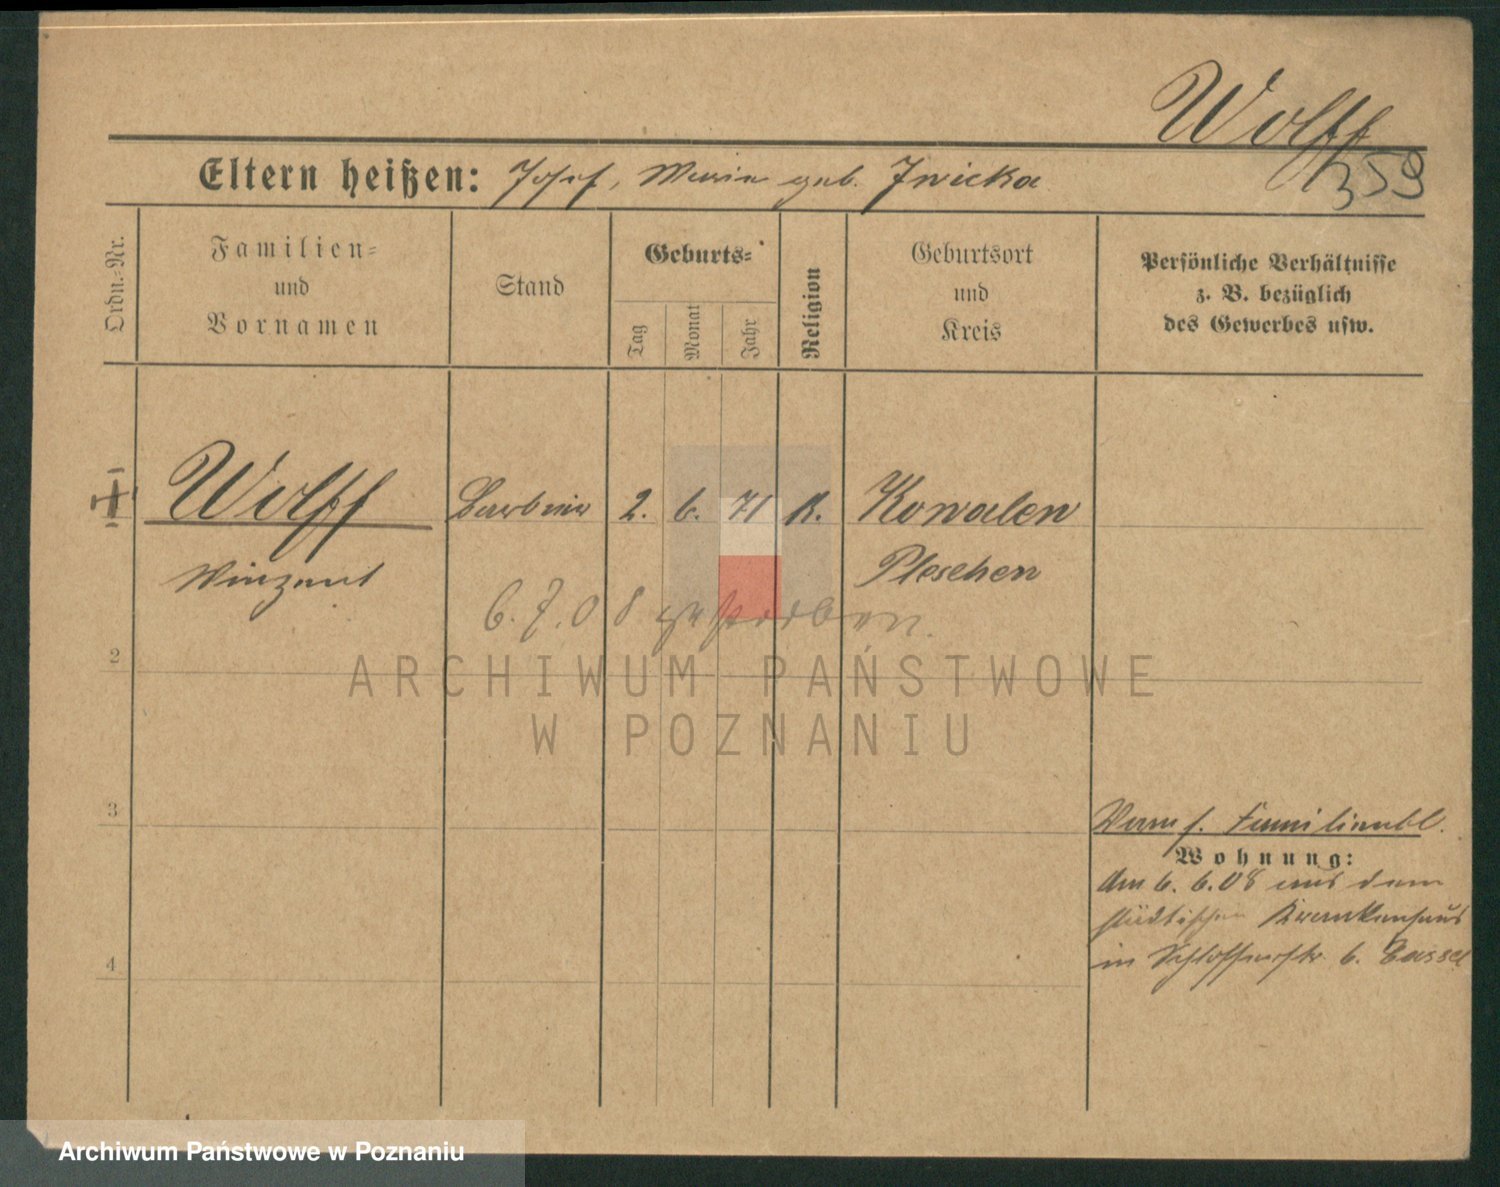 Wolff
359
Eltern heißen: Josef, Maria geb. Zwicka
Ordn.-Nr.
Familien-
und
Vornamen
Stand
Geburts-
Tag
Monat
Jahr
Religion
Geburtsort
und
Kreis
Persönliche Verhältnisse
z. B. bezüglich
des Gewerbes usw.
Wolff Barbier 2. 6. 71 K. Kowalew
Vinzent Pleschen
6.7.08 gestorben.
2
ARCHIWUM PAŃSTWOWE
W POZNANIU
3
Familienbl.
Wohnung:
Am 6. 6. 08 aus dem
städtischen Krankenhaus
in Schlosserstr. 6. Cassel
4
Archiwum Państwowe w Poznaniu